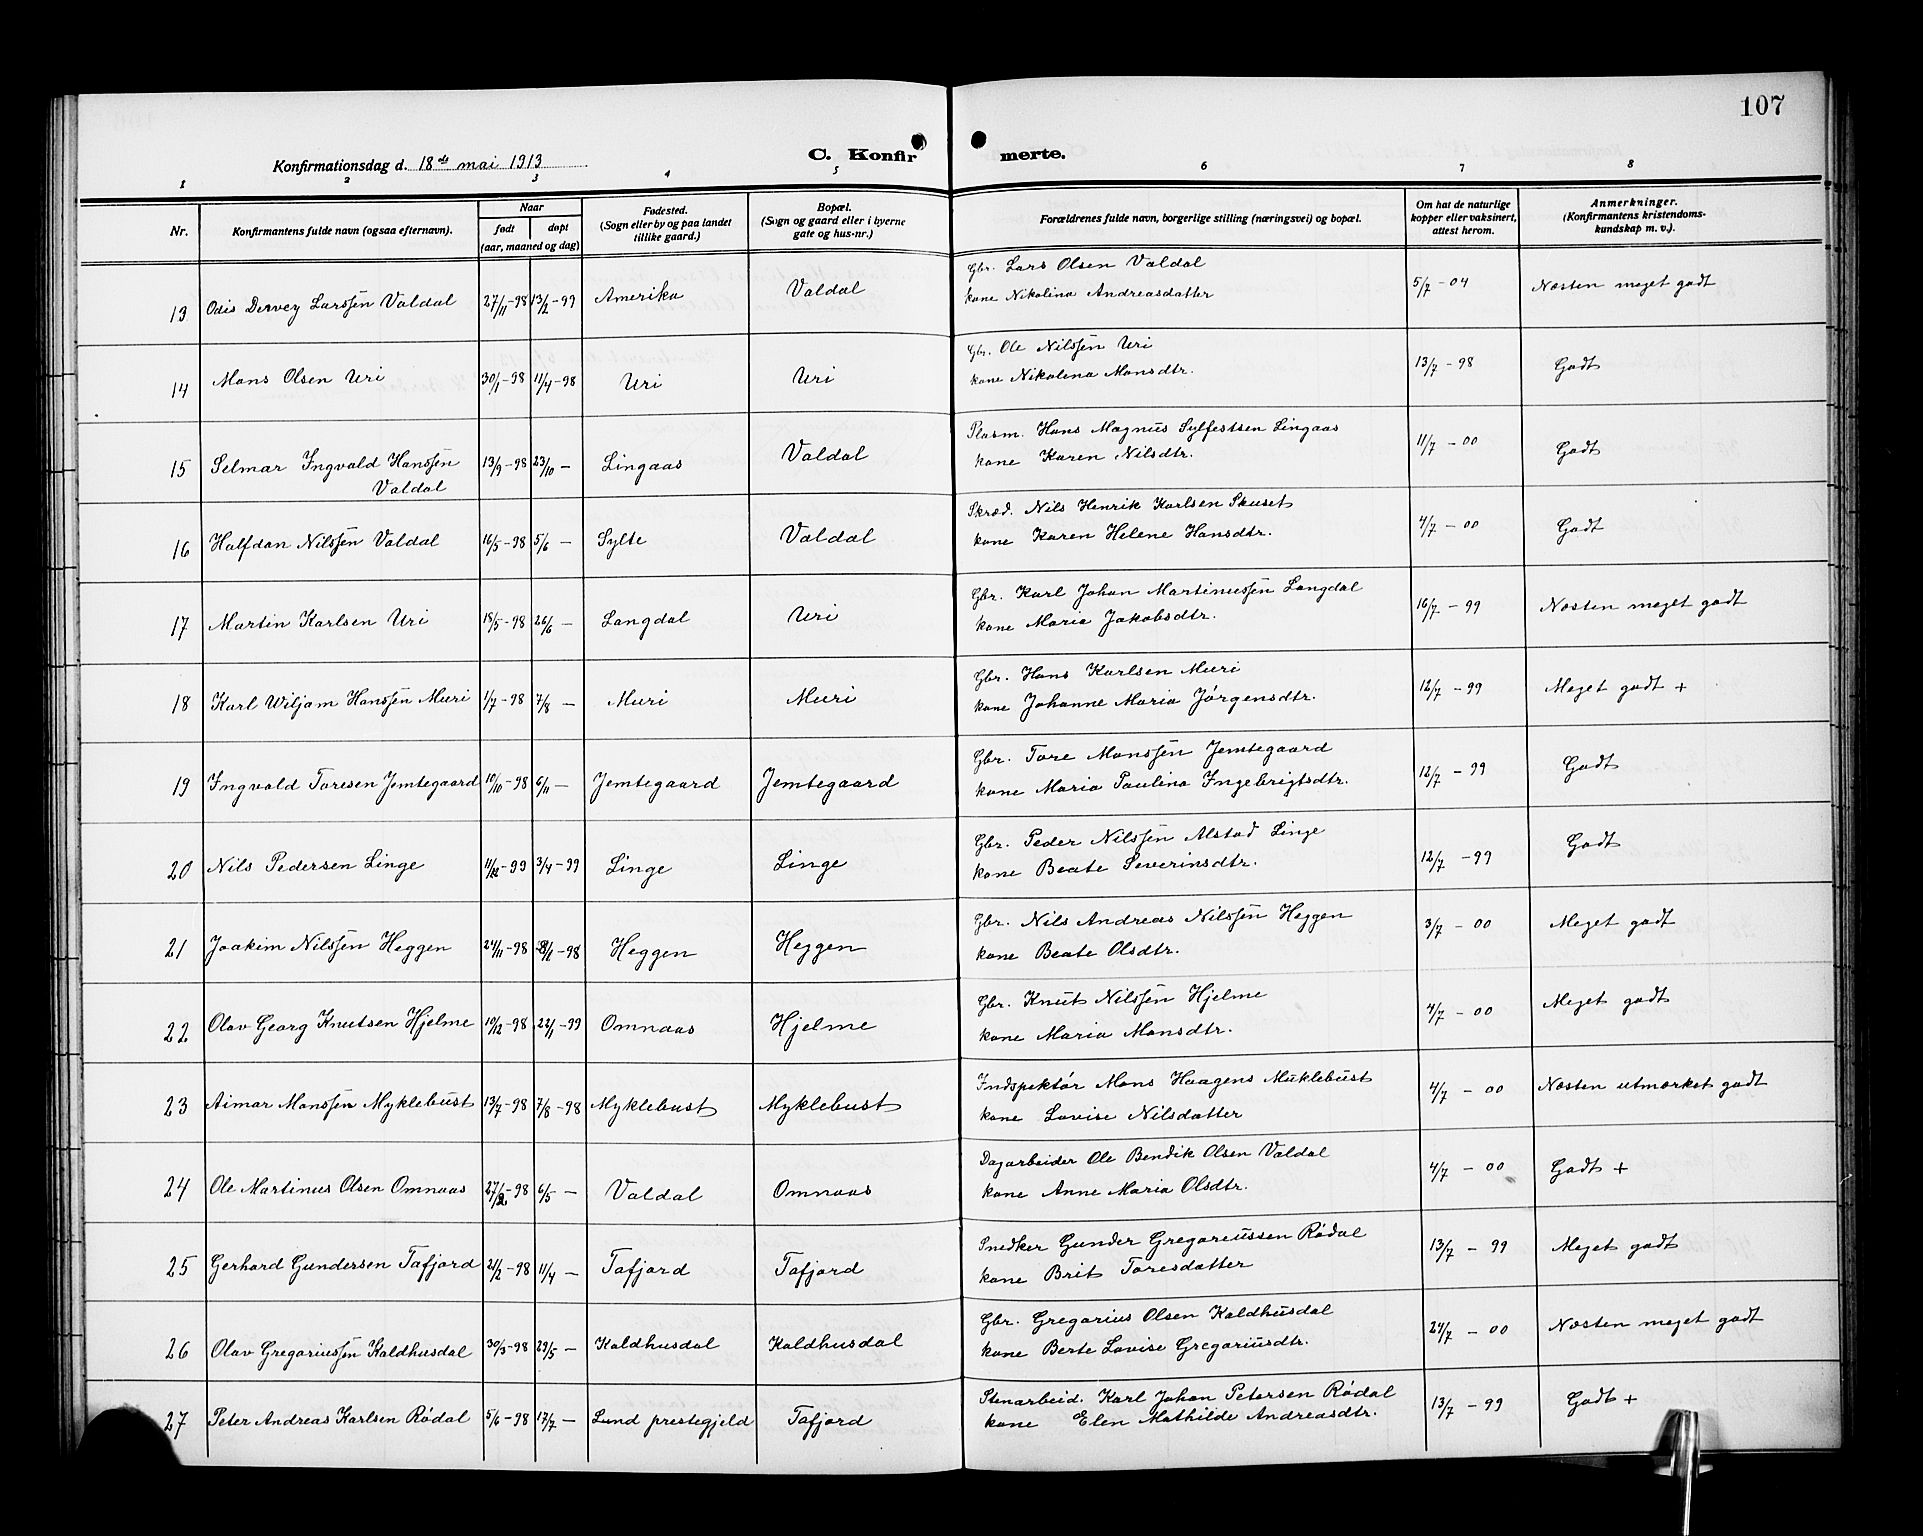 107
Konfirmationsdag d. 18de mai 1913
C. Konfir merte.
1 2 3 4 5 6 7 8
Nr.
Konfirmantens fulde navn (ogsaa efternavn).
Naar
født døpt
(aar, maaned og dag)
Fødested.
(Sogn eller by og paa landet
tillike gaard.)
Bopæl.
(Sogn og gaard eller i byerne
gate og hus-nr.)
Forældrenes fulde navn, borgerlige stilling (næringsvei) og bopæl.
Om hat de naturlige
kopper eller vaksinert,
attest herom.
Anmerkninger.
(Konfirmantens kristendoms-
kundskap m. v.).
13 Odis Dervey Larssen Valdal 27/11-98 13/2-99 Amerika Valdal Gbr. Lars Olsen Valdal 5/7-04 Næsten meget godt
kone Nikolina Andreasdatter
14 Mons Olsen Uri 30/1-98 11/4-98 Uri Uri Gbr. Ole Nilssen Uri 13/7-98 Godt
kone Nikolina Monsdtr.
15 Selmar Ingvald Hanssen 13/9-98 23/10 - Lingaas Valdal Plasm. Hans Magnus Sylfestsen Lingaas 11/7-00 Godt
Valdal kone Karen Nilsdtr.
16 Halfdan Nilssen Valdal 16/5-98 5/6 - Sylte Valdal Skræd. Nils Henrik Karlsen Skuset 4/7-00 Godt
kone Karen Helene Hansdtr.
17 Martin Karlsen Uri 18/5-98 26/6 - Langdal Uri Gbr. Karl Johan Martinussen Langdal 16/7-99 Næsten meget godt
kone Maria Jakobsdtr.
18 Karl Wiljam Hanssen Muri 1/7-98 7/8 - Muri Muri Gbr. Hans Karlsen Muri 12/7-99 Meget godt +
kone Johanne Maria Jørgensdtr.
19 Ingvald Toresen Jemtegaard 10/10-98 6/11 - Jemtegaard Jemtegaard Gbr. Tore Monssen Jemtegaard 12/7-99 Godt
kone Maria Paulina Ingebrigtsdtr.
20 Nils Pedersen Linge -99 3/4-99 Linge Linge Gbr. Peder Nilssen Alstad Linge 12/7-99 Godt
kone Beate Severinsdtr.
21 Joakim Nilssen Heggen 24/11-98 -98 Heggen Heggen Gbr. Nils Andreas Nilssen Heggen 3/7-00 Meget godt
kone Beate Olsdtr.
22 Olav Georg Knutsen Hjelme 10/12-98 22/1-99 Omnaas Hjelme Gbr. Knut Nilssen Hjelme 4/7-00 Meget godt
kone Maria Monsdtr.
23 Aimar Monssen Myklebust 13/7-98 7/8-98 Myklebust Myklebust Indspektør Mons Haagens Muklebust 4/7-00 Næsten utmærket godt
kone Lovise Nilsdatter
24 Ole Martinus Olsen Omnaas 27/2-98 6/5 - Valdal Omnaas Dagarbeider Ole Bendik Olsen Valdal 4/7-00 Godt +
kone Anne Maria Olsdtr.
25 Gerhard Gundersen Tafjord 21/2-98 11/4 - Tafjord Tafjord Snedker Gunder Gregoriussen Rødal 13/7-99 Meget godt
kone Brit Toresdatter
26 Olav Gregoriussen Kaldhusdal 30/3-98 29/5 - Kaldhusdal Kaldhusdal Gbr. Gregorius Olsen Kaldhusdal 24/7-00 Næsten meget godt
kone Berte Lovise Gregoriusdtr.
27 Peter Andreas Karlsen Rødal 5/6-98 17/7 - Lund prestegjeld Tafjord Stenarbeid. Karl Johan Petersen Rødal 13/7-99 Godt +
kone Elen Mathilde Andreasdtr.